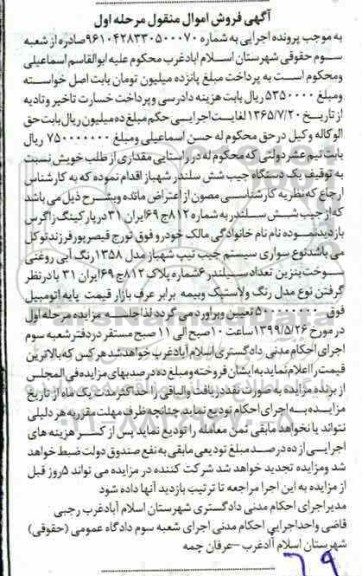 آگهی فروش اموال منقول مرحله اول
به موجب پرونده اجرایی به شماره ۹۶۱۰۴۲۸۳۳۰۵۰۰۰۷۰صادره از شعبه
سوم حقوقی شهرستان اسلام ابادغرب محکوم علیه ابوالقاسم اسماعیلی
ومحکوم است به پرداخت مبلغ پانزده میلیون تومان بابت اصل خواسته
ومبلغ ۵۳۵۰۰۰۰ ریال بابت هزینه دادرسی وپرداخت خسارت تاخیر وتادیه
از تاریخ ۱۳۶۵/۷/۲۰ لغایت اجرایی حکم مبلغ ده میلیون ریال بابت حق
الوکاله وکیل در حق محکوم له حسن اسماعیلی ومبلغ ۷۵۰۰۰۰۰۰ ریال
بابت نیم عشر دولتی که محکوم له در راستایی مقداری از طلب خویش نسبت
به توقیف یک دستگاه جیب شش سلندر شهباز اقدام نموده که به کارشناس
ارجاع که نظریه کارشناسی مصون از اعتراض مانده وبشرح ذیل می باشد
که از جیب شش سلندر به شماره ۸۱۲ج۶۹ ایران ۳۱ در پارکینگ زاگرس
بازدید نموده نام نام خانوادگی مالک خودرو فوق تورج قیصرپور فرزند توکل
می باشد نوع سواری سیستم جیب تیپ شهباز مدل ۱۳۵۸ رنگ آبی روغنی
سوخت بنزین تعداد سیلندر ۶ شماره پلاک ۸۱۲ج۶۹ ایران ۳۱ با در نظر
گرفتن نوع مدل رنگ ولاستیک وبیمه برابر عرف بازار قیمت پایه اتومبیل
فوق تعیین وبراورد می گردد لذا جلسه مزایده مرحله اول
در مورخ ۱۳۹۹/۵/۲۶ ساعت ۱۰ صبح الی ۱۱ صبح مستقر در دفتر شعبه سوم
اجرای احکام مدنی دادگستری اسلام آبادغرب خواهد شد هر کس که بالاترین
قیمت را اعلام نماید به ایشان فروخته ومبلغ ده درصد بهای مزایده فی المجلس
از برنده مزایده به صورت نقد دریافت والباقی را حداکثر مدت یک ماه از تاریخ
مزایده به اجرای احکام تودیع نماید چنانچه ظرف مهلت مقرر به هر دلیلی
نتواند یا نخواهد مابقی ثمن معامله را تودیع نماید پس از کسر هزینه های
اجرایی از ده درصد مبلغ تودیعی مابقی به نفع صندوق دولت ضبط خواهد
شد ومزایده تجدید خواهد شد شرکت کننده در مزایده می تواند ۵روز قبل
از مزایده به این اجرا مراجعه تا ترتیب بازدید آنها داده شود
مدیر اجرای احکام مدنی دادگستری شهرستان اسلام آبادغرب رجبی
قاضی واحد اجرایی احکام مدنی اجرای شعبه سوم دادگاه عمومی (حقوقی)
شهرستان اسلام آبادغرب –عرفان چمه
۶۹